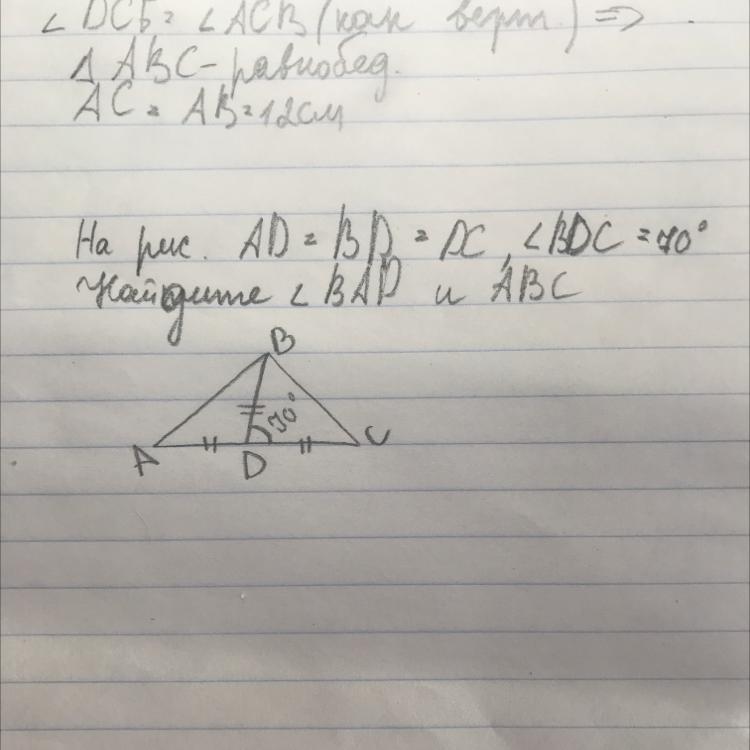 ∠ DCБ = ∠ ACB (как верт.) =>
Δ ABC - равнобед.
AC = AB = 12 см
На рис. AD = BD = DC, ∠BDC = 70°
Найдите ∠ BAD и ABC
B
70°
A
D
C